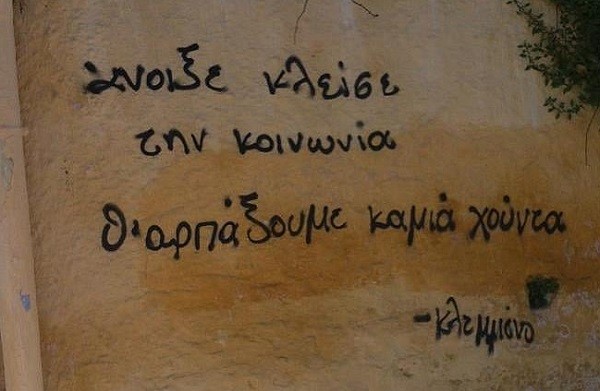 άνοιξε κλείσε
την κοινωνία
θ'αρπάξουμε καμιά χούντα
-κλεμμένο